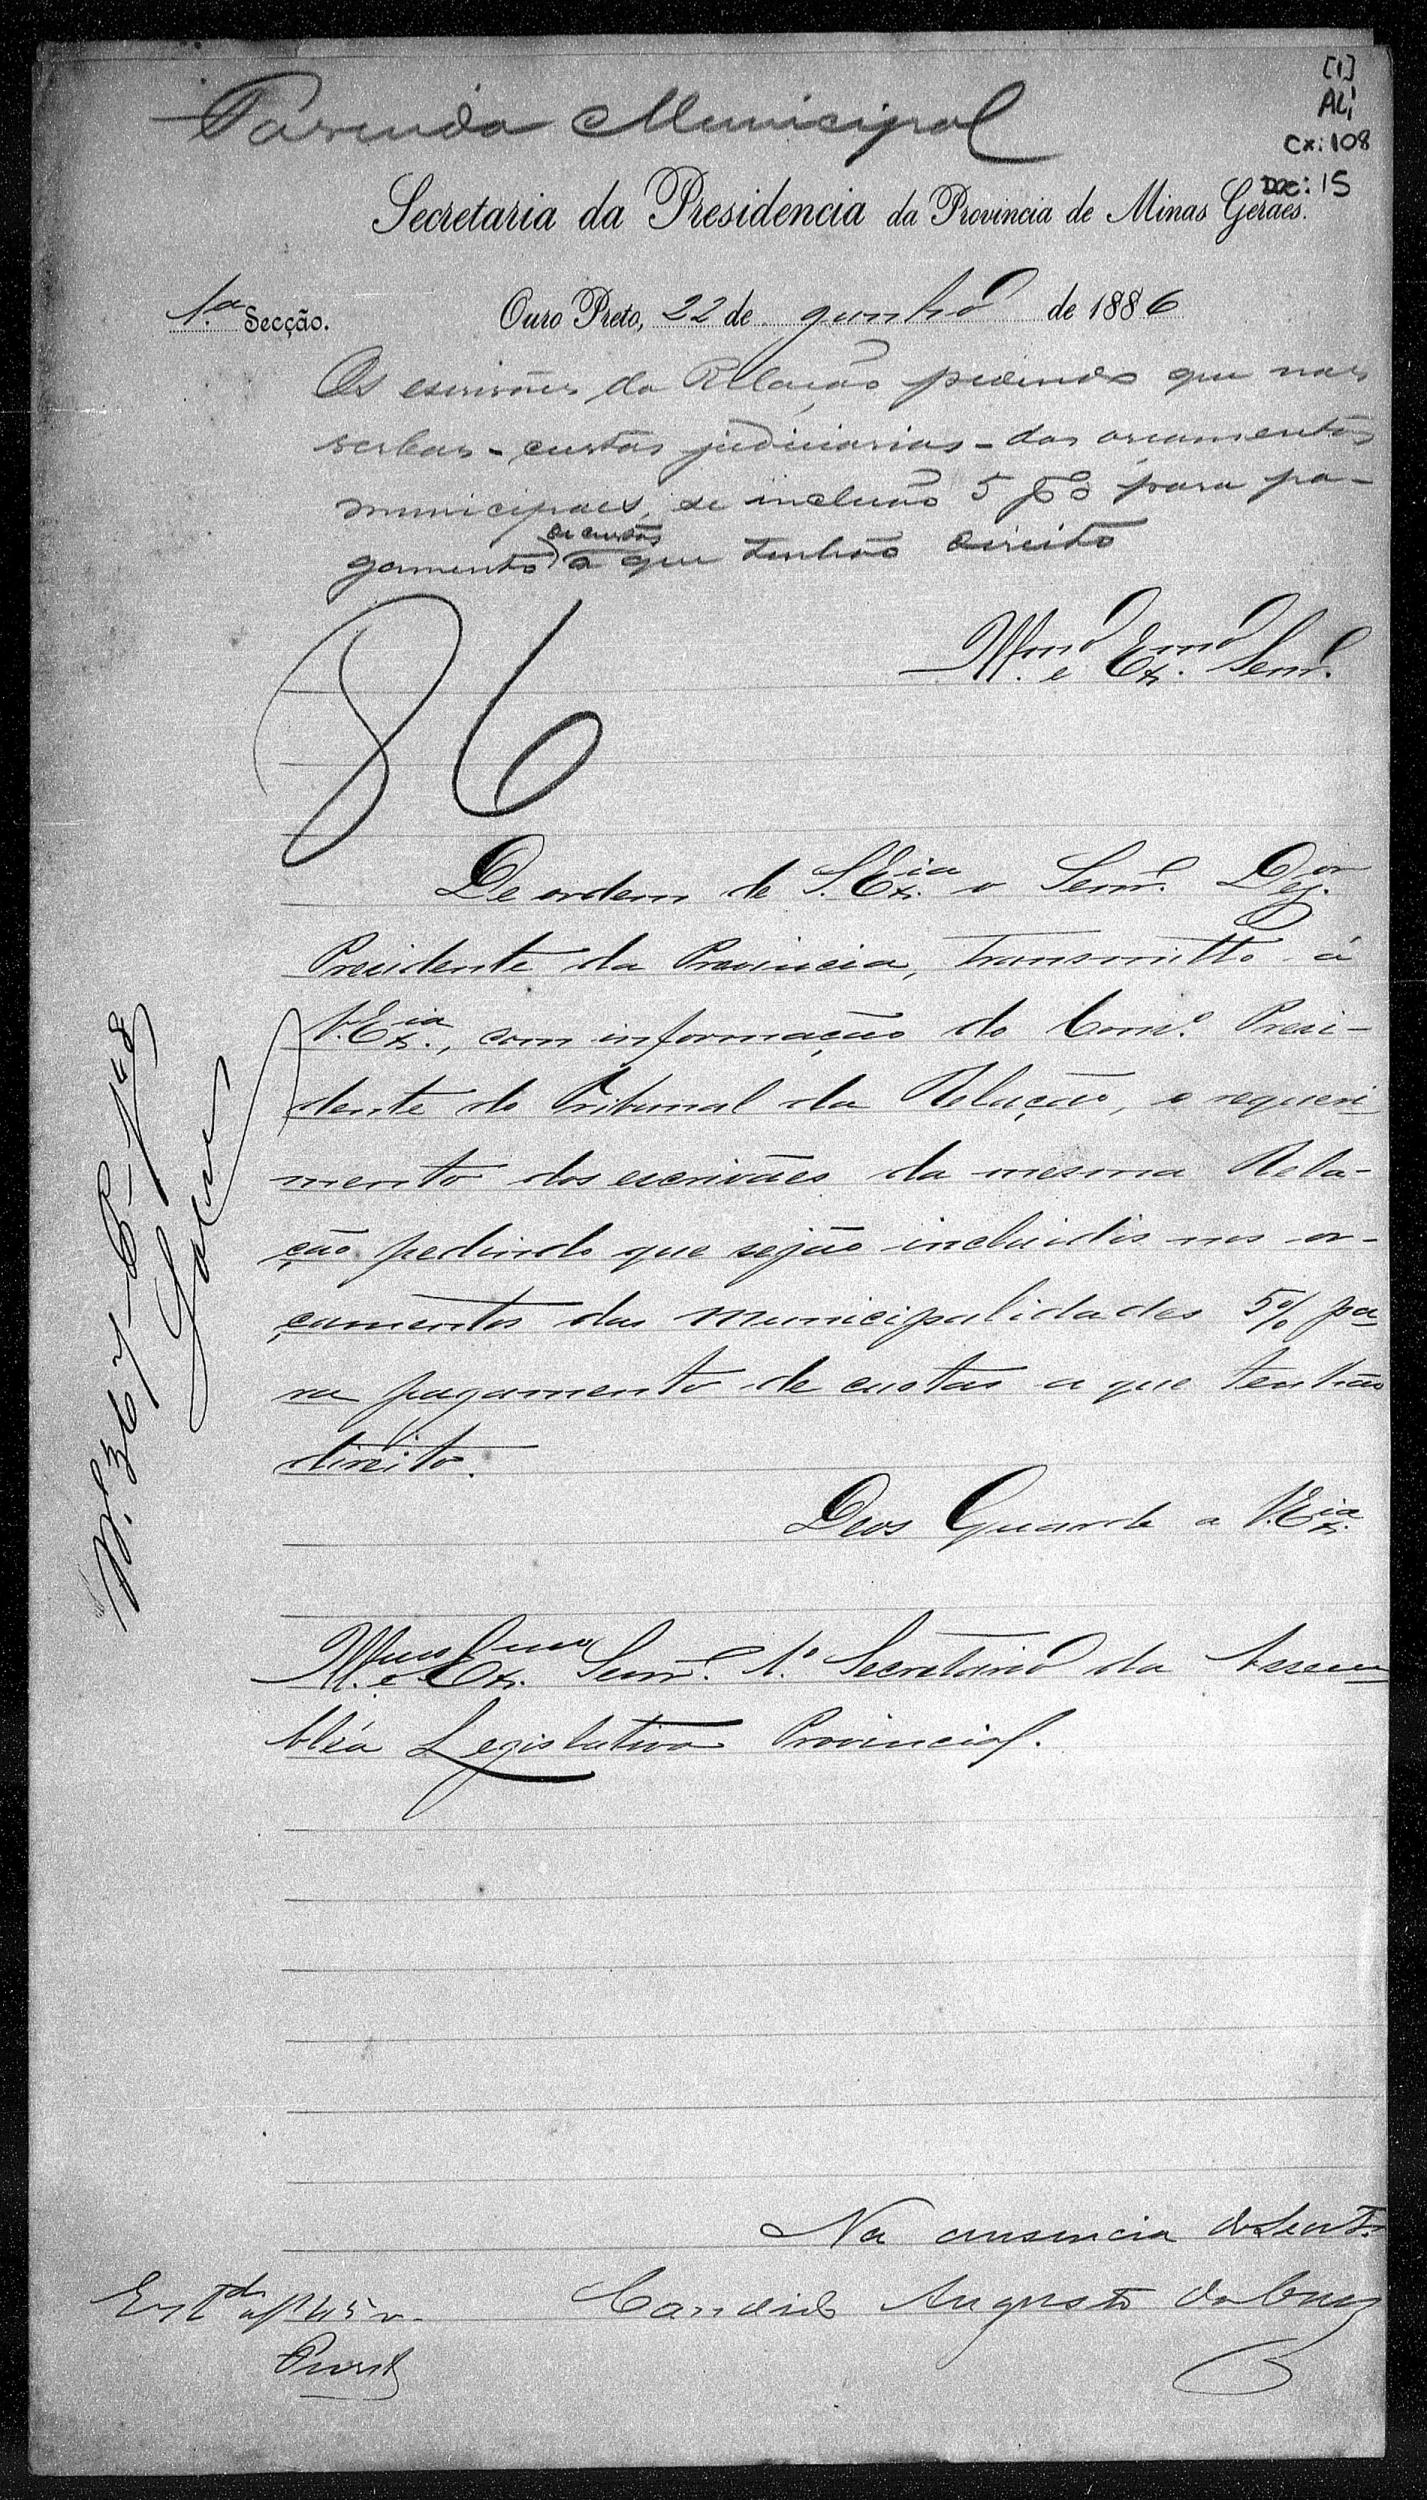 Fasenda Municipal
[1]
AL1
Cx: 108
Doc: 15
Secretaria da Presidencia da Provincia de Minas Geraes.
1.ª Secção. Ouro Preto, 22 de junho de 1886
Os escrivães da Relação pedindo que nas
verbas - custas judiciarias - dos orcamentos
municipaes, se incluão 5 p% para pa-
de custas
gamento a que tenhão direito
Illmo e Exmo Senr.
86
De ordem de S. Exia o Senr. Dezor
Presidente da Provincia, transmitto á
V. Exia, com informação do Conso. Presi-
dente do Tribunal da Relação, o requeri-
mento dos escrivães da mesma Rela-
ção pedindo que sejão incluidos nos or-
çamentos das municipalidades 5% pa-
ra pagamento de custas a que tenhão
direito.
Deos Guarde a V. Exia
Illmo e Exmo Senr. 1.º Secretario da Assem
bléa Legislativa Provincial.
Na ausencia do Secrt.º
Candido Augusto da Cruz